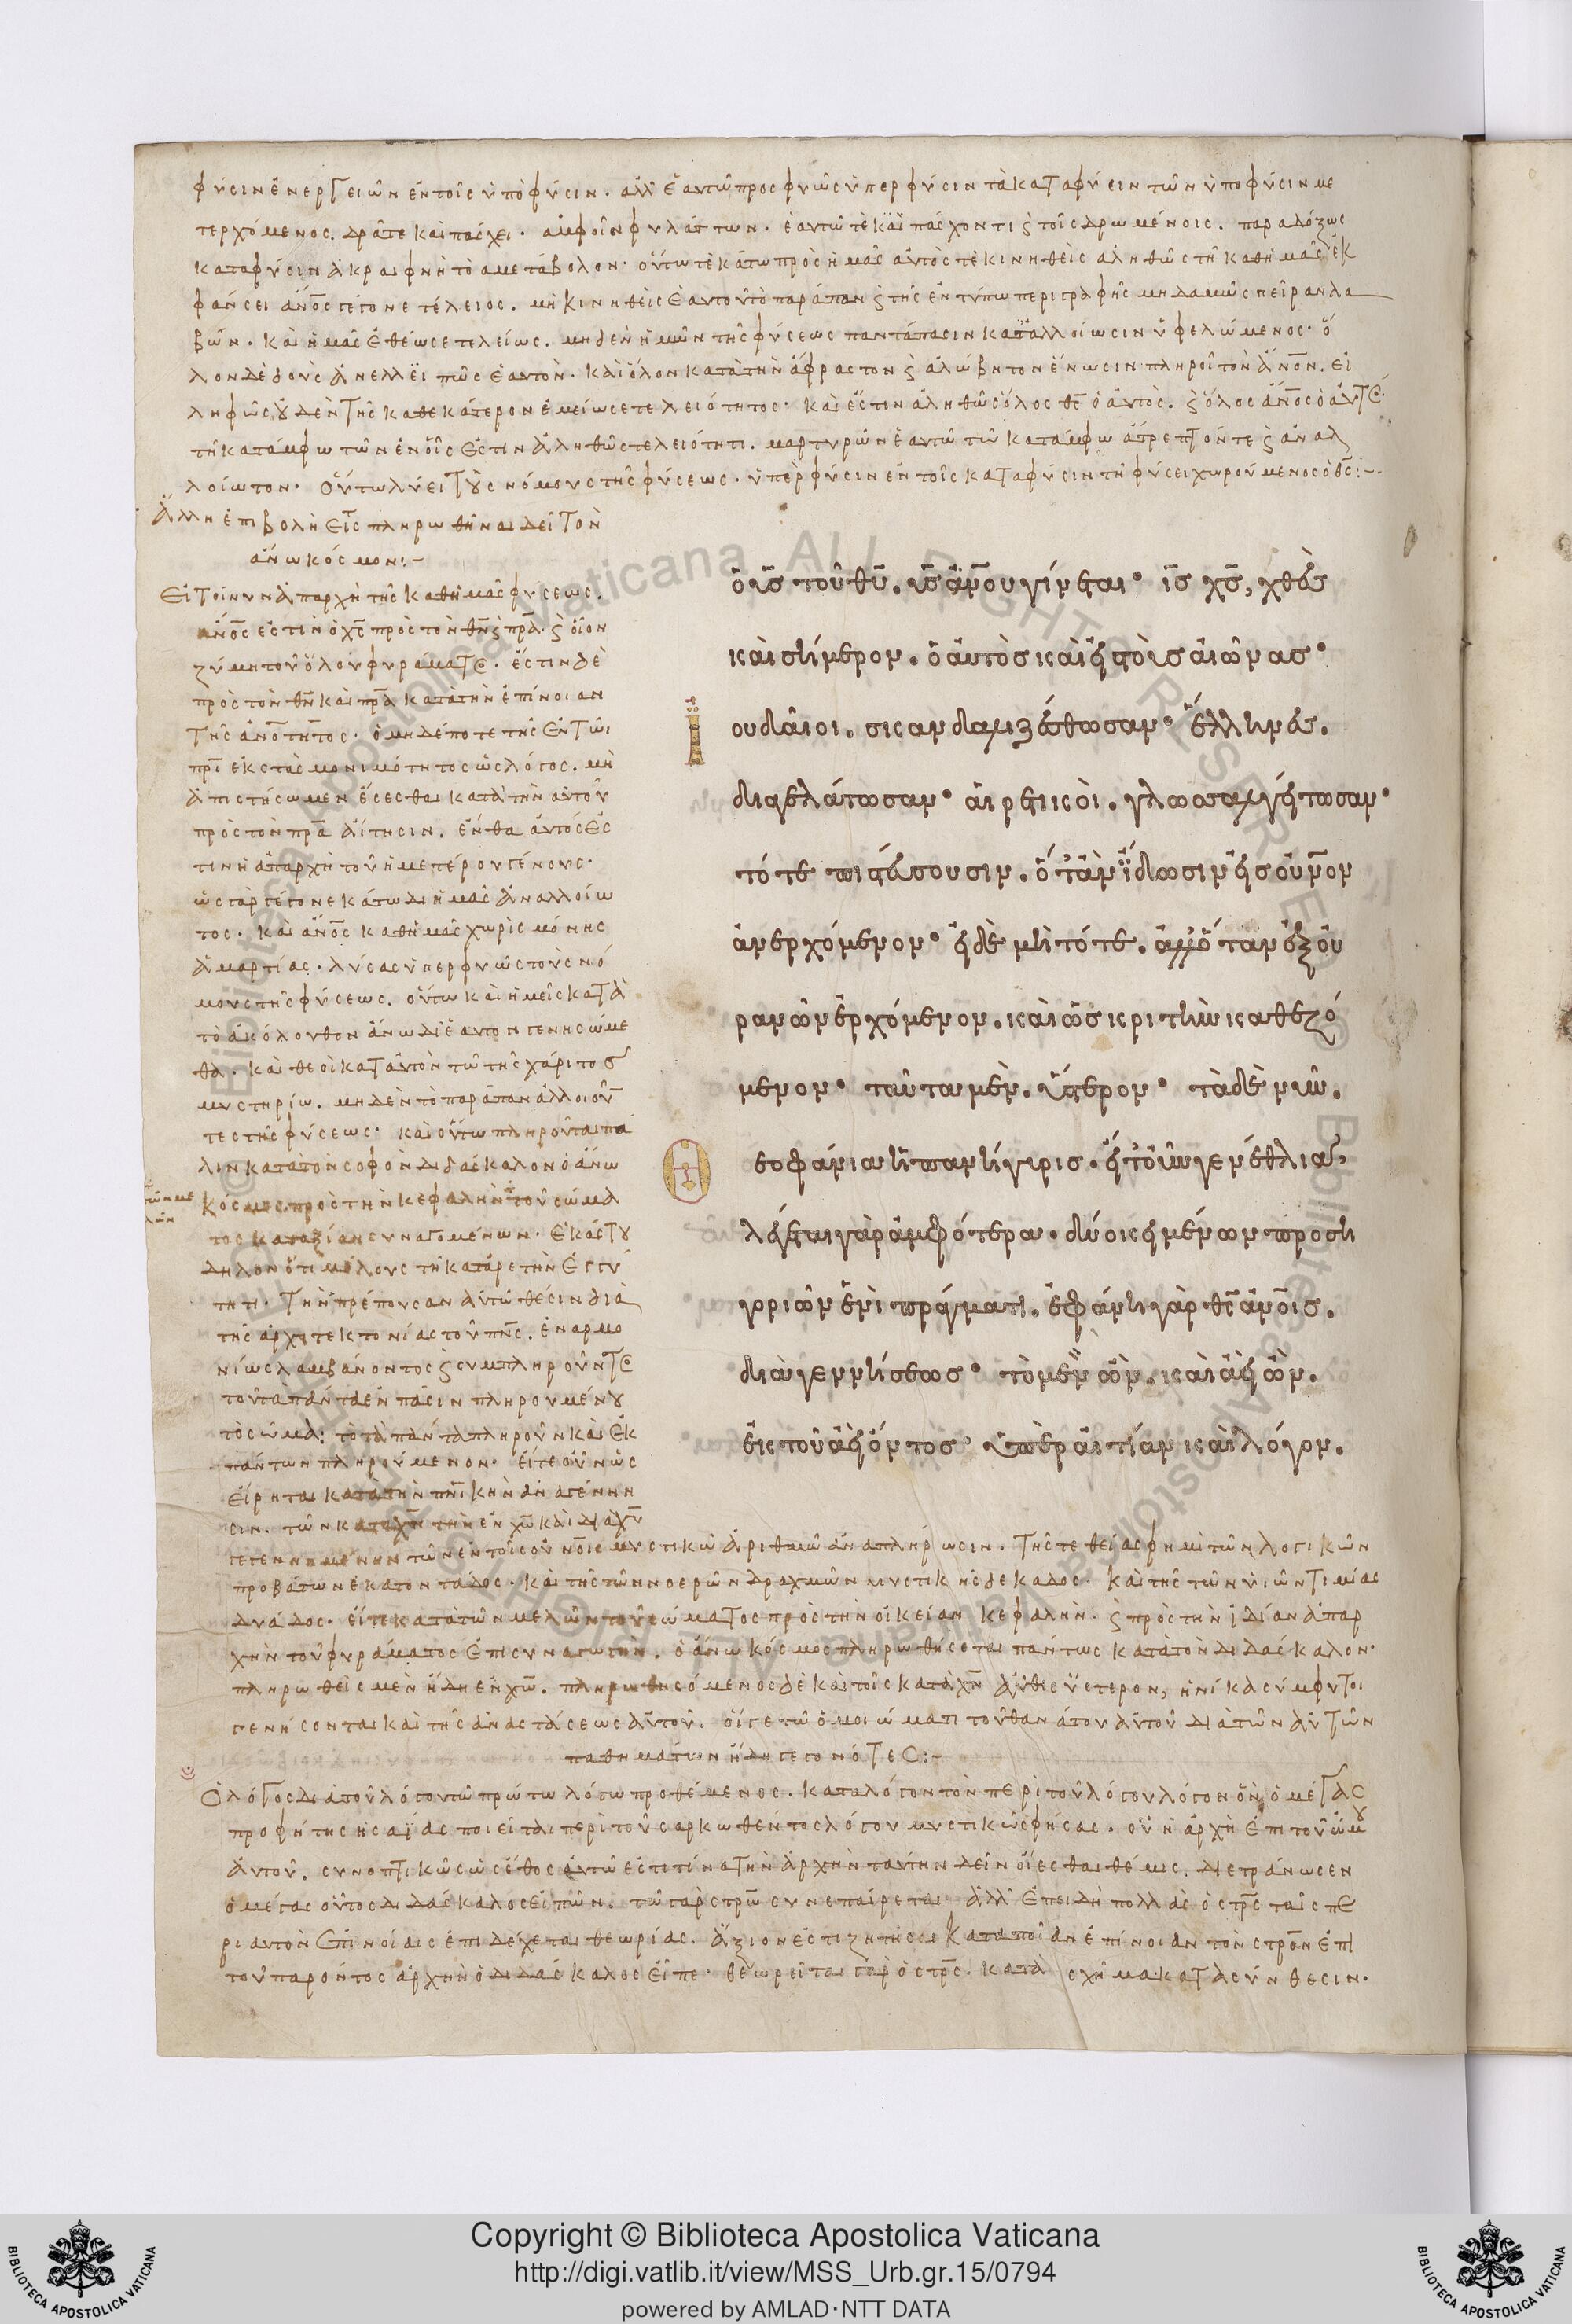 φύσιν ἐνεργειῶν ἐν τοῖς ὑπὸ φύσιν. ἀλλ' ἑαυτῷ προσφυῶς ὑπερφύσιν τὰ κατὰ φύσιν τῶν ὑπὸ φύσιν με
τερχόμενος. δρᾶτε καὶ πάσχει. ἀμφοῖν φυλάττων. ἑαυτῷ τὲ καὶ πάσχοντι ϛ τοῖς δρωμένοις. παραδόξως
κατὰ φύσιν ἀκραιφνῆ τὸ ἀμετάβολον. οὕτω τὲ κάτω πρὸς ἡμᾶς αὐτός τὲ κινηθεὶς ἀληθῶς τῇ καθ' ἡμᾶς ἐκ
φάνσει ἄνος γέγονε τέλειος. μὴ κινηθεὶς ἑαυτοῦ τὸ παράπαν ϛ τῆς ἐν τύπω περιγραφῆς μηδαμῶς πεῖραν λα
βών. καὶ ἡμᾶς ἐθέωσε τελείως. μηδὲν ἡμῶν τῆς φύσεως παντάπασιν κατ' ἀλλοίωσιν ὑφελώμενος. ὅ
λον δὲ δοὺς ἀνελλιπῶς ἑαυτόν. καὶ ὅλον κατὰ τὴν ἄφραστον ϛ ἀλώβητον ἕνωσιν πληροῖ τὸν ἄνον. εἰ
ληφῶς οὐδὲν τῆς καθ' ἑκάτερον ἐμείωσε τελειότητος. καὶ ἔστιν ἀληθῶς ὅλος θς ὁ αὐτός. ϛ ὅλος ἄνος ὁ αὐτὸς
τῇ κατάμφω τῶν ἐν οἷς ἐστιν ἀληθῶς τελειότητι. μαρτυρῶν ἑαυτῷ τῶ κατάμφω ἄτρεπτόν τε ϛ ἀναλ
λοίωτον. οὕτω λύει τοὺς νόμους τῆς φύσεως. ὑπὲρ φύσιν ἐν τοῖς κατὰ φύσιν τῇ φύσει χωρούμενος ὁ θς:-
Ἄλλη ἐπιβολὴ εἰς πληρωθῆναι δεῖ τὸν
ἄνω κόσμον:-
Εἰ τοίνυν ἀπαρχὴ τῆς καθ' ἡμᾶς φύσεως.
ἄνος ἐστὶν ὁ χς πρὸς τὸν θν ϛ πρα. ϛ οἷον
ζύμη τοῦ ὅλου φυράματος. ἔστιν δὲ
πρὸς τὸν θν καὶ πρα κατὰ τὴν ἐπίνοιαν
τῆς ἀνοτητος. ὁ μηδέποτε τῆς ἐν τῶι
πρι ἐκστὰς μονιμότητος ὡς λόγος. μὴ
ἀπιστήσωμεν ἔσεσθαι κατὰ τὴν αὐτοῦ
πρὸς τὸν πρα αἴτησιν. ἔνθα αὐτός ἐς
τιν ἡ ἀπαρχὴ τοῦ ἡμετέρου γένους.
ὡς γὰρ γέγονε κάτω δι' ἡμᾶς ἀναλλοίω
τος. καὶ ἄνος καθ' ἡμᾶς χωρὶς μόνης
ἁμαρτίας. λύσας ὑπερφυῶς τοὺς νό
μους τῆς φύσεως. οὕτω καὶ ἡμεῖς κατὰ
τὸ ἀκόλουθον ἄνω δι' ἑαυτὸν γενησώμε
θα. καὶ θεοὶ κατ' αὐτὸν τῶ τῆς χάριτος
μυστηρίω. μηδὲν τὸ παράπαν ἀλλοιοῦν
τες τῆς φύσεως. καὶ οὕτω πληροῦται πά
λιν κατὰ τὸν σοφὸν διδάσκαλον ὁ ἄνω
κόσμος, πρὸς τὴν κεφαλὴν τοῦ σώμα
τος κατ' ἀξίαν συναγομένων. ἑκάστου
δηλονότι μέλους τῇ κατ' ἀρετὴν ἐγγύ
τητι. τὴν πρέπουσαν αὐτῶ θέσιν διὰ
τῆς ἀρχιτεκτονίας τοῦ πνς. ἐναρμο
νίως λαμβάνοντος ϛ συμπληροῦντος
τοῦ τὰ πάντα ἐν πᾶσιν πληρουμένου
τὸ σῶμα: τὸ τὰ πάντα πληροῦν καὶ ἐκ
πάντων πληρούμενον. εἴτε οὖν ὡς
εἴρηται κατὰ τὴν πνικὴν ἀναγέννη
σιν. τῶν κατὰ χν τὴν ἐν χω καὶ διὰ χυ
γεγενημένην τῶν ἐν τοῖς οὐνοις μυστικῶ ἀριθμῶ ἀναπλήρωσιν. τῆς τε θείας φημὶ τῶν λογικῶν
προβάτων ἑκατοντάδος. καὶ τῆς τῶν νοερῶν δραχμῶν μυστικῆς δεκάδος. καὶ τῆς τῶν υἱῶν τιμίας
δυάδος. εἴτε κατὰ τῶν μελῶν τοῦ σώματος πρὸς τὴν οἰκείαν κεφαλήν. ϛ πρὸς τὴν ἰδίαν ἀπαρ
χὴν τοῦ φυράματος ἐπισυναγωγήν. ὁ ἄνω κόσμος πληρωθήσεται πάντως κατὰ τὸν διδάσκαλον.
πληρωθεὶς μὲν ἤδη ἐν χω. πληρωθησόμενος δὲ καὶ τοῖς κατὰ χν αὖθις ὕστερον, ἡνίκα σύμφυτοι
γενήσονται καὶ τῆς ἀναστάσεως αὐτοῦ. οἵγε τῶ ὁμοιώματι τοῦ θανάτου αὐτοῦ διὰ τῶν αὐτῶν
παθημάτων ἤδη γεγονότες:-
Ὁ λόγος διὰ τοῦ λόγου τῶ πρώτω λόγω προθέμενος. καταλόγον τὸν περὶ τοῦ λόγου λόγον ὃν ὁ μέγας
προφήτης ἡσαΐας ποιεῖται περὶ τοῦ σαρκωθέντος λόγου μυστικῶς φήσας. οὗ ἡ ἀρχὴ ἐπὶ τοῦ ὤμου
αὐτοῦ. συνοπτικῶς ὡς ἔθος αὐτῶ ἐστι τίνα τὴν ἀρχὴν ταύτην δεῖν οἴεσθαι θέμις. διετράνωσεν
ὁ μέγας οὗτος διδάσκαλος εἰπών. τῶ γὰρ στρω συνεπαίρεται ἀλλ' ἐπειδὴ πολλὰς ὁ στρς ταῖς πε
ρὶ αὐτὸν ἐπινοίαις ἐπιδέχεται θεωρίας. ἄξιον ἐστι ζητῆσαι κατὰ ποῖαν ἐπίνοιαν τὸν στρον ἐπὶ
τοῦ παρόντος ἀρχὴν ὁ διδάσκαλος εἶπε. θεωρεῖται γὰρ ὁ στρς. κατὰ σχῆμα. κατὰ σύνθεσιν.
ὁ υς τοῦ θυ. υς ἀνου γίνεται. ις χς, χθὲς
καὶ σήμερον. ὁ αὐτὸς καὶ εἰς τοὺς αἰῶνας.
Ἰουδαῖοι. σκανδαλιζέσθωσαν. ἕλληνες.
διαγελάτωσαν. αἱρετικοὶ. γλωσσαλγείτωσαν.
τότε πιστεύσουσιν. ὅταν ἴδωσιν εἰς οὐνον
ἀνερχόμενον. εἰ δὲ μὴ τότε. ἀλλ' ὅταν ἐξ οὐ
ρανῶν ἐρχόμενον. καὶ ὡς κριτὴν καθεζό
μενον. ταῦτα μὲν. ὕστερον. τὰ δὲ νῦν.
Θεοφάνια ἡ πανήγυρις. εἴτ' οὖν γενέθλια,
λέγεται γὰρ ἀμφότερα. δύο κειμένων προση
γοριῶν ἑνὶ πράγματι. ἐφάνη γὰρ θς ἀνοις.
διὰ γεννήσεως. τὸ μὲν ὢν. καὶ ἀεὶ ὢν.
ἐκ τοῦ ἀεὶ ὄντος. ὑπὲρ αἰτίαν καὶ λόγον.
Copyright © Biblioteca Apostolica Vaticana
http://digi.vatlib.it/view/MSS_Urb.gr.15/0794
powered by AMLAD·NTT DATA